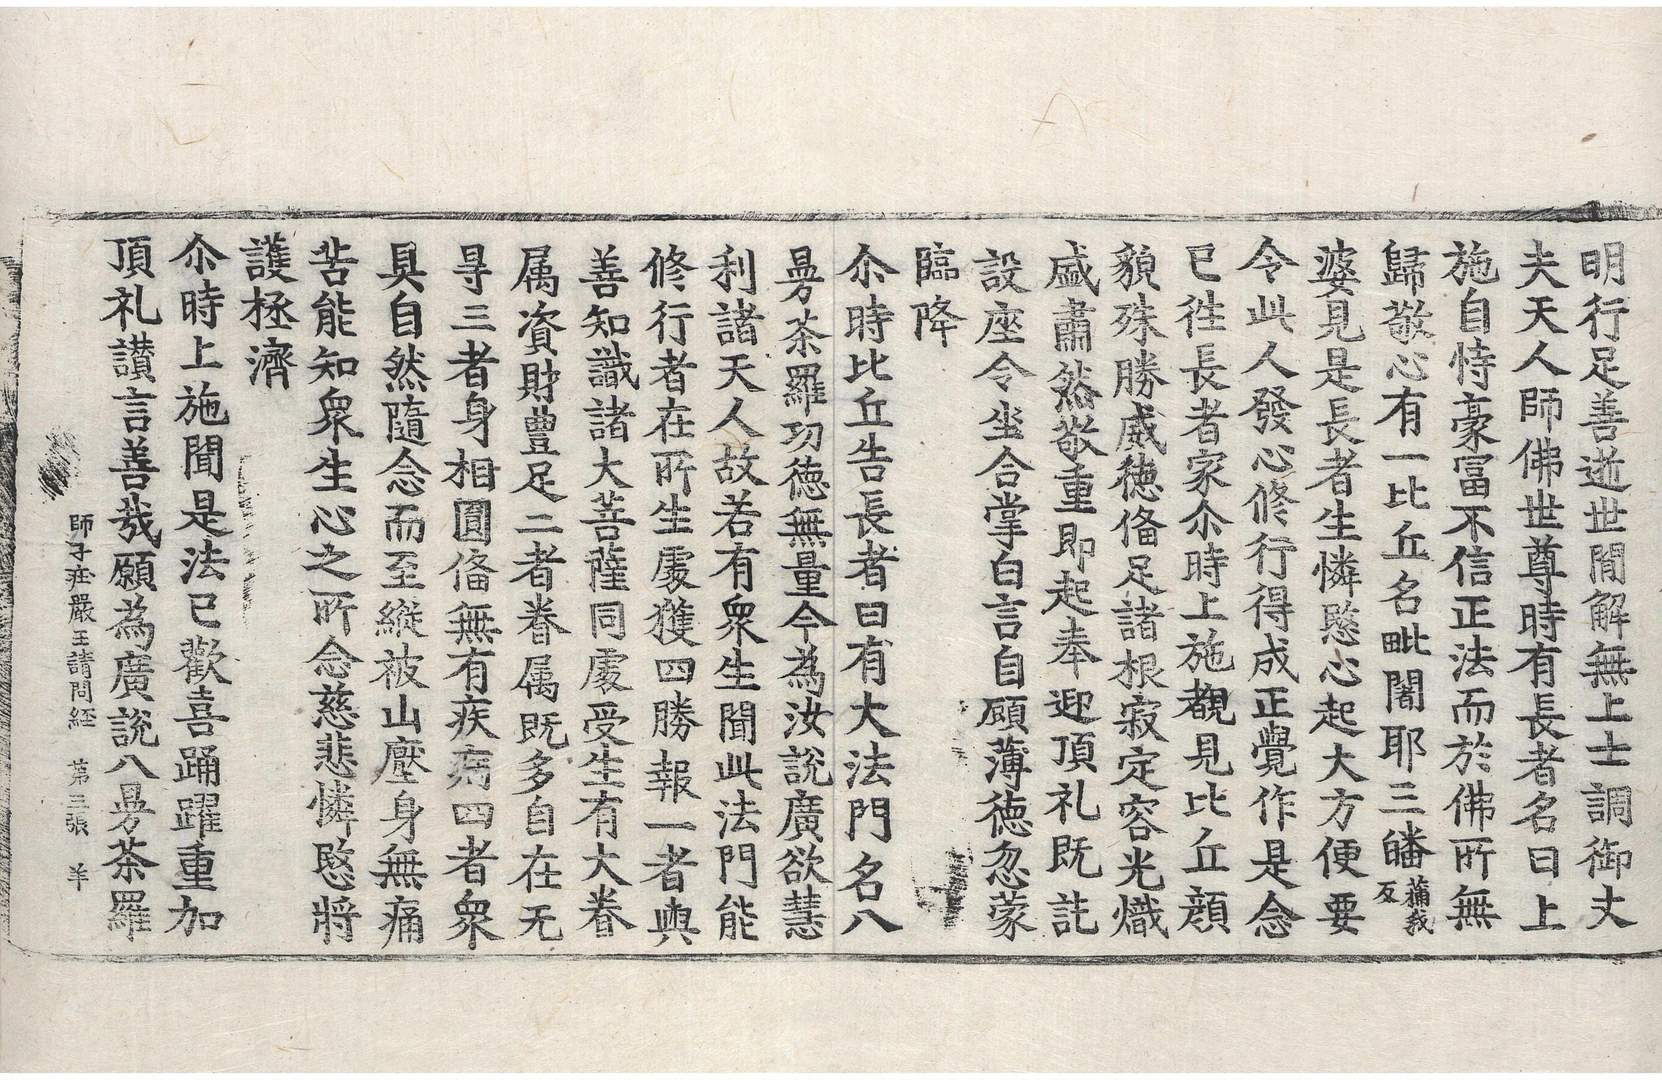 明行足善逝世間解無上士調御丈
夫天人師佛世尊時有長者名曰上
施自恃豪富不信正法而於佛所無
歸敬心有一比丘名毗闍耶三皤蒲我反
婆見是長者生憐愍心起大方便要
令此人發心修行得成正覺作是念
已往長者家尒時上施覩見比丘顔
貌殊勝威德俻足諸根寂定容光熾
盛肅然敬重即起奉迎頂礼既訖
設座令坐合掌白言自顧薄德忽蒙
臨降
尒時比丘告長者曰有大法門名八
曼茶羅功德無量今為汝說廣欲慧
利諸天人故若有衆生聞此法門能
修行者在所生處獲四勝報一者與
善知識諸大菩薩同處受生有大眷
属資財豊足二者眷属既多自在无
㝵三者身相圓俻無有疾病四者衆
具自然隨念而至縱被山壓身無痛
苦能知衆生心之所念慈悲憐愍將
護拯濟
尒時上施聞是法已歡喜踊躍重加
頂礼讃言善哉願為廣說八曼茶羅
師子莊嚴王請問經　第三張　羊